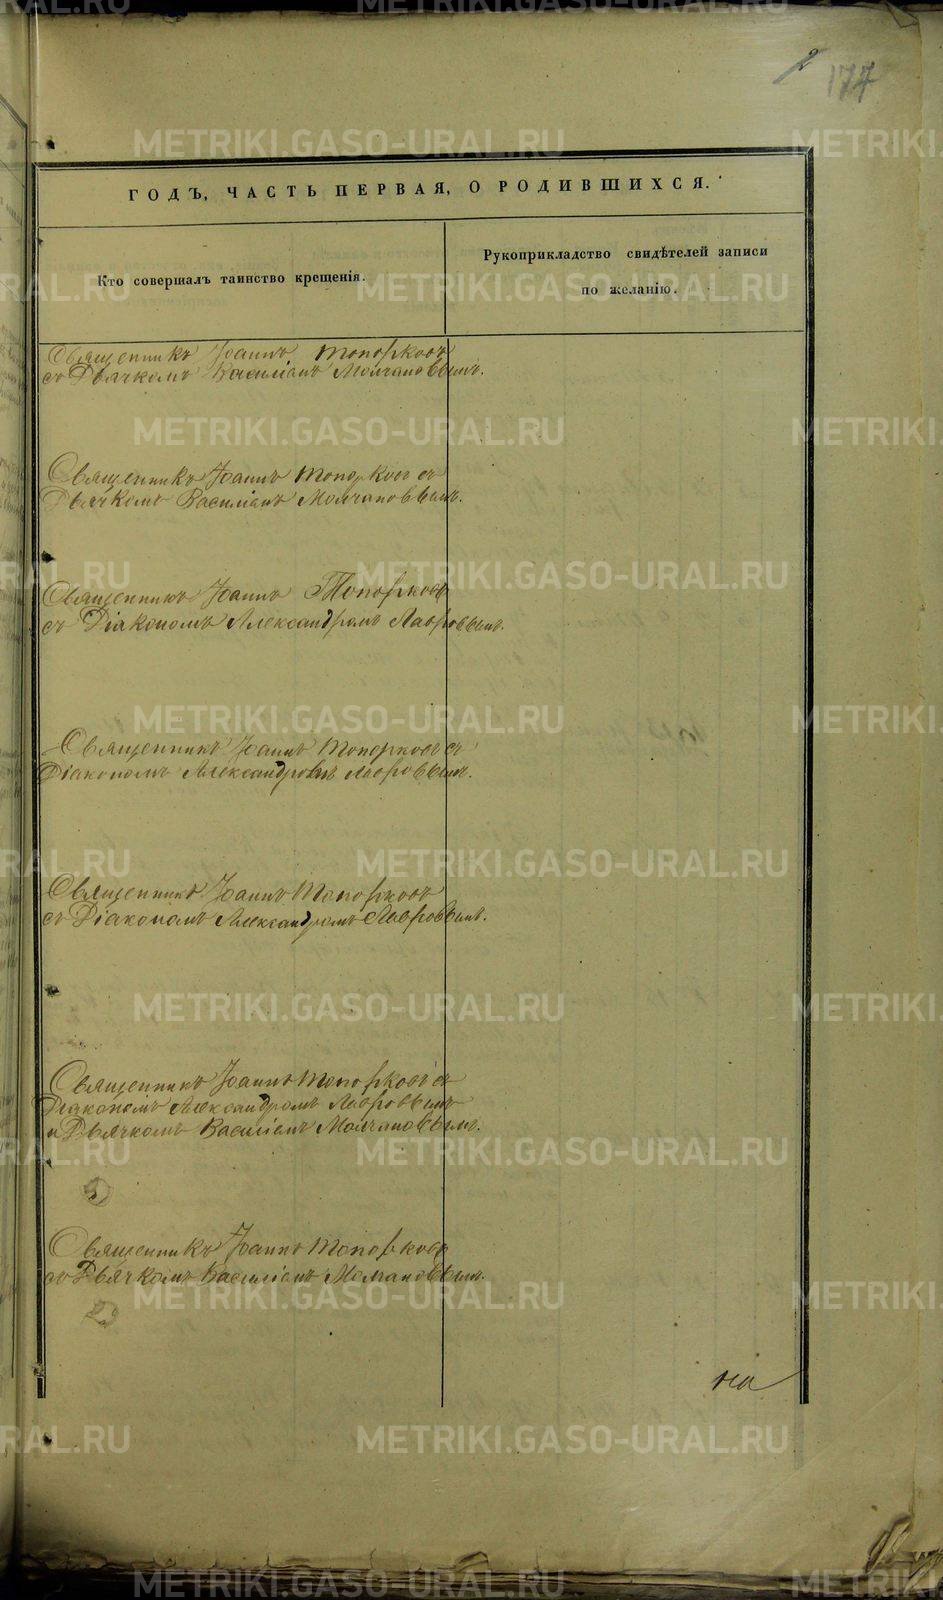 2
177
ГОДЪ, ЧАСТЬ ПЕРВАЯ, О РОДИВШИХСЯ.
Кто совершалъ таинство крещенія.
Рукоприкладство свидѣтелей записи
по желанію.
Священникъ Іоаннъ Топорковъ
съ Дьячкомъ Василіемъ Молчановымъ.
Священникъ Іоаннъ Топорковъ съ
Дьячкомъ Василіемъ Молчановымъ.
Священникъ Іоаннъ Топорковъ
съ Діакономъ Александромъ Лавровымъ.
Священникъ Іоаннъ Топорковъ съ
Діакономъ Александромъ Лавровымъ.
Священникъ Іоаннъ Топорковъ
съ Діакономъ Александромъ Лавровымъ.
Священникъ Іоаннъ Топорковъ съ
Діакономъ Александромъ Лавровымъ
и Дьячкомъ Василіемъ Молчановымъ.
Священникъ Іоаннъ Топорковъ
съ Дьячкомъ Василіемъ Молчановымъ.
на
METRIKI.GASO-URAL.RU